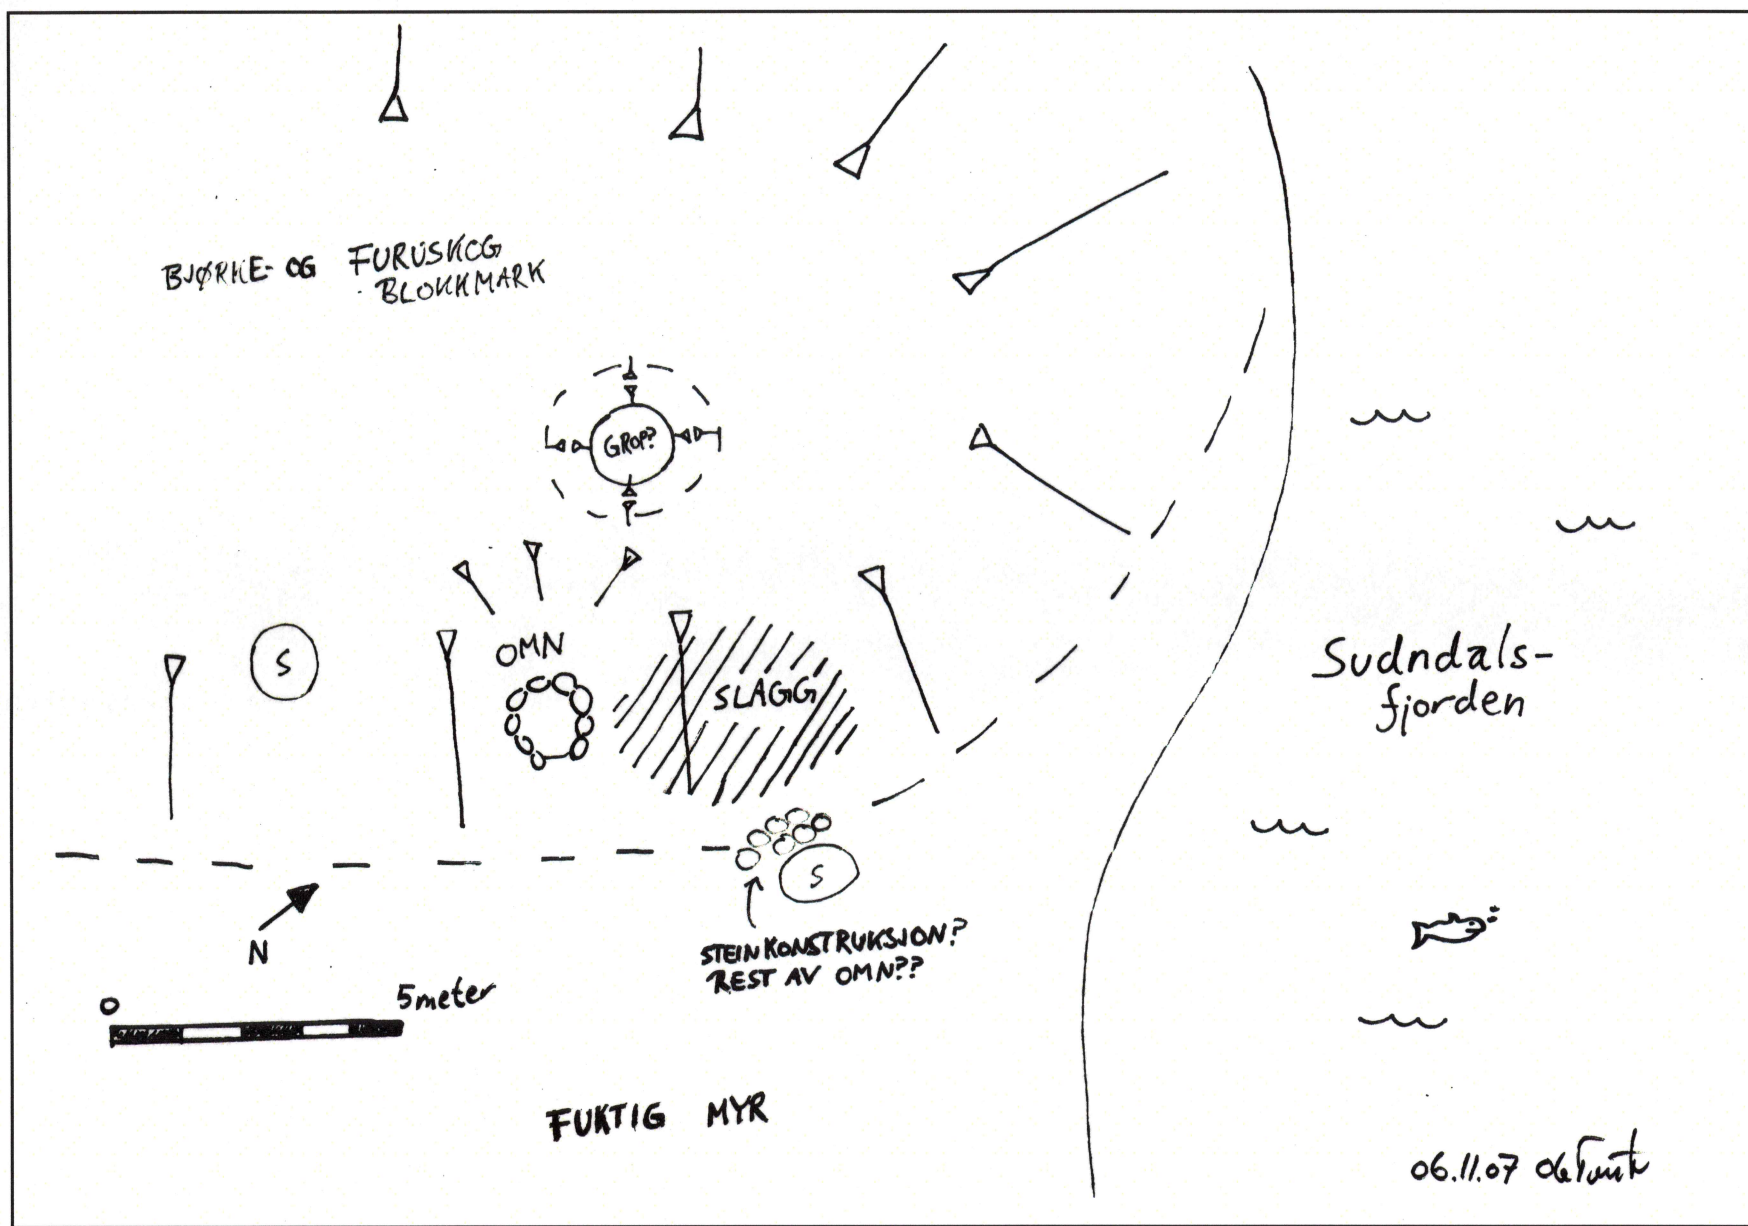 BJØRKE- OG FURUSKOG
BLOKKMARK
GROP?
OMN
S
SLAGG
Sudndals-
fjorden
S
N
STEINKONSTRUKSJON?
REST AV OMN??
0
5meter
FUKTIG MYR
06.11.07